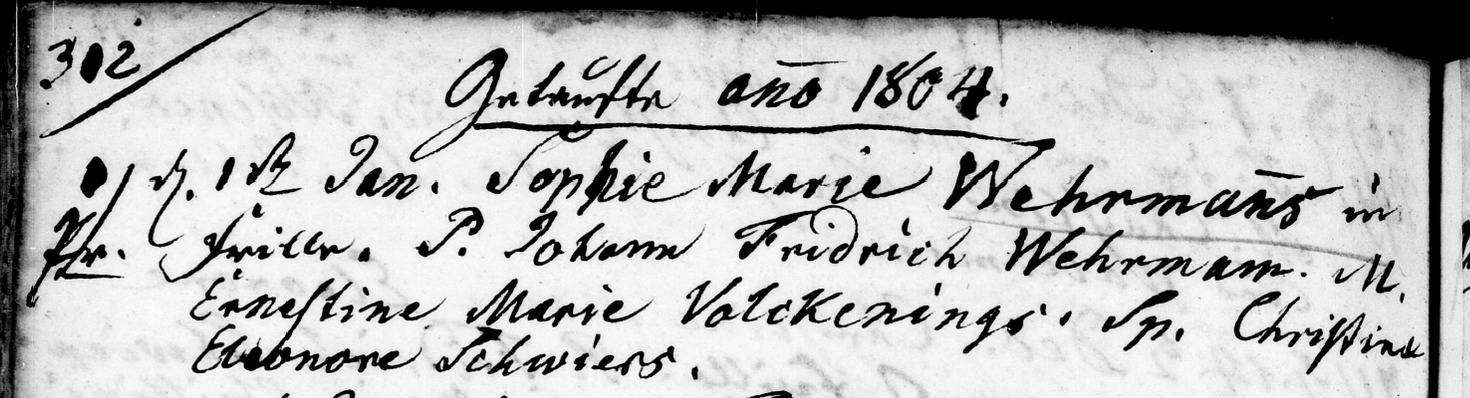 302
Getaufte año 1804.
1) d. 1st Jan. Sophie Marie Wehrmañs in
Pr. Frille. P. Johann Fridrich Wehrmann. M.
Ernestine Marie Volckenings. Sp. Christine
Eleonore Schwiers.